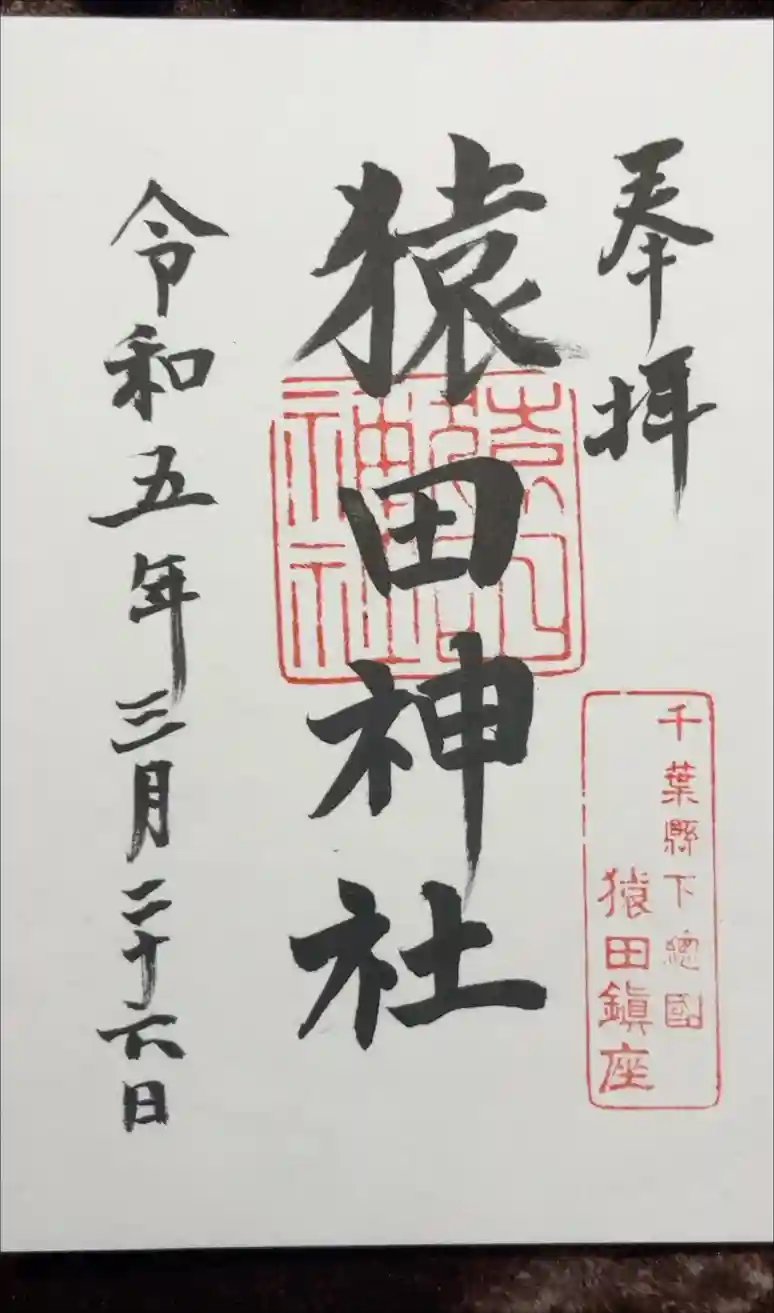 奉拝
千葉縣下總國
猿田鎭座
猿田神社
猿田神社
令和五年三月二十六日